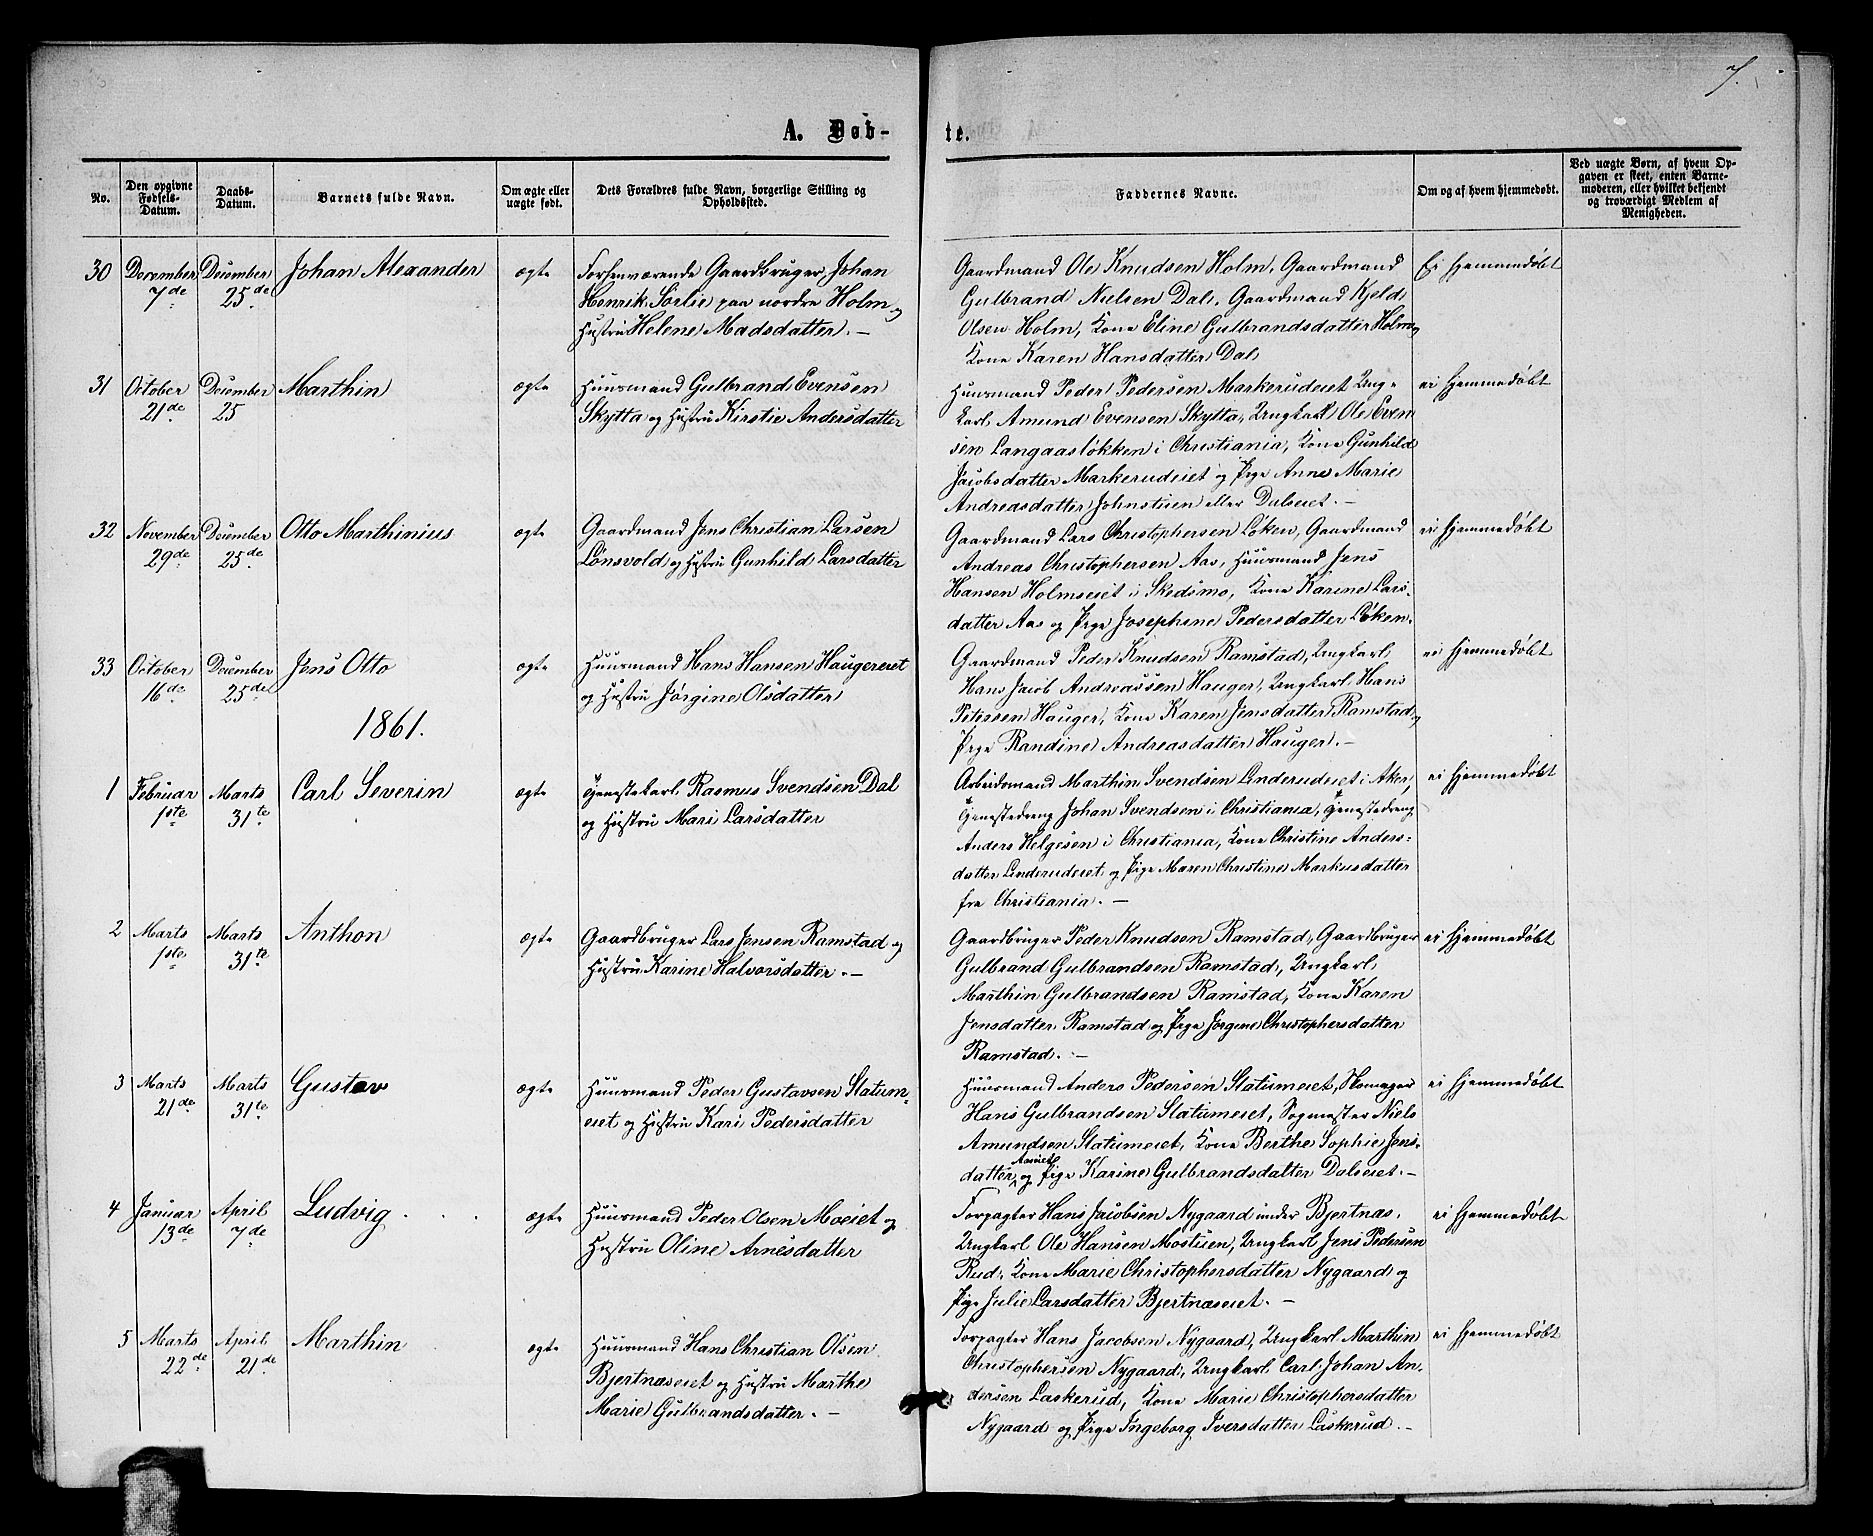 7.
A. Døb-
te.
No.
Den opgivne
Fødsels-
Datum.
Daabs-
Datum.
Barnets fulde Navn.
Om ægte eller
uægte født.
Dets Forældres fulde Navn, borgerlige Stilling og
Opholdssted.
Faddernes Navne.
Om og af hvem hjemmedøbt.
Ved uægte Børn, af hvem Op-
gaven er skeet, enten Barne-
moderen, eller hvilket bekjendt
og troværdigt Medlem af
Menigheden.
30
December
7de
December
25de
Johan Alexander
ægte
Forhenværende Gaardbruger Johan
Henrik Sørlie paa nordre Holm og
Hustru Helene Madsdatter. —
Gaardmand Ole Knudsen Holm, Gaardmand
Gulbrand Nielsen Dal, Gaardmand Kjeld
Olsen Holm, Kone Eline Gulbrandsdatter Holm og
Kone Karen Hansdatter Dal
Ei hjemmedøbt
31
October
21de
December
25
Marthin
ægte
Huusmand Gulbrand Evensen
Skytta og Hustru Kirstie Andersdatter
Huusmand Peder Pedersen Markerudeiet Ung-
karl Amund Evensen Skytta, Ungkarl Ole Even
sen Langaasløkken i Christiania, Kone Gunhild
Jacobsdatter Markerudeiet og Pige Anne Marie
Andreasdatter Johnstuen eller Dalseiet. —
ei hjemmedøbt
32
November
29de
December
25de
Otto Marthinius
ægte
Gaardmand Jens Christian Larsen
Lønsvold og Hustru Gunhild Larsdatter
Gaardmand Lars Christophersen Løken, Gaardmand
Andreas Christophersen Aas, Huusmand Jens
Hansen Holmseiet i Skedsmo, Kone Karine Lars-
datter Aas og Pige Josephine Pedersdatter Løken.
ei hjemmedøbt
33
October
16de
December
25de
Jens Otto
ægte
Huusmand Hans Hansen Haugereiet
og Hustru Jørgine Olsdatter
Gaardmand Peder Knudsen Ramstad, Ungkarl
Hans Jacob Andreassen Hauger, Ungkarl Hans
Petersen Hauger, Kone Karen Jensdatter Ramstad og
Pige Randine Andreasdatter Hauger. —
ei hjemmedøbt
1861.
1
Februar
1ste
Marts
31te
Carl Severin
ægte
Tjenestekarl Rasmus Svendsen Dal
og Hustru Mari Larsdatter
Arbeidsmand Marthin Svendsen Linderudeiet i Aker,
Tjenestedreng Johan Svendsen i Christiania, Tjenestedreng
Anders Helgesen i Christiania, Kone Christine Anders-
datter Linderudeiet og Pige Maren Christine Markusdatter
fra Christiania. —
ei hjemmedøbt
2
Marts
1ste
Marts
31te
Anthon
ægte
Gaardbruger Lars Jensen Ramstad og
Hustru Karine Halvorsdatter. —
Gaardbruger Peder Knudsen Ramstad, Gaardbruger
Gulbrand Gulbrandsen Ramstad, Ungkarl
Marthin Gulbrandsen Ramstad, Kone Karen
Jensdatter Ramstad og Pige Jørgine Christophersdatter
Ramstad. —
ei hjemmedøbt
3
Marts
21de
Marts
31te
Gustav
ægte
Huusmand Peder Gustavsen Slatum-
eiet og Hustru Kari Pedersdatter
Huusmand Anders Pedersen Slatumeiet, Skomager
Hans Gulbrandsen Slatumeiet, Sogmester Niels
Amundsen Slatumeiet, Kone Berthe Sophie Jens-
datter Aaseiet og Pige Karine Gulbrandsdatter Dalseiet. —
ei hjemmedøbt
4
Januar
13de
April
7de
Ludvig
ægte
Huusmand Peder Olsen Moeiet og
Hustru Oline Arnesdatter
Forpagter Hans Jacobsen Nygaard under Bjertnæs,
Ungkarl Ole Hansen Mostuen, Ungkarl Jens Pedersen
Rud, Kone Marie Christophersdatter Nygaard og
Pige Julie Larsdatter Bjertnæseiet. —
ei hjemmedøbt
5
Marts
22de
April
21de
Marthin
ægte
Huusmand Hans Christian Olsen
Bjertnæseiet og Hustru Marthe
Marie Gulbrandsdatter. —
Forpagter Hans Jacobsen Nygaard, Ungkarl Marthin
Christophersen Nygaard, Ungkarl Carl Johan An-
dersen Laskerud, Kone Marie Christophersdatter
Nygaard og Pige Ingeborg Iversdatter Laskerud. —
ei hjemmedøbt